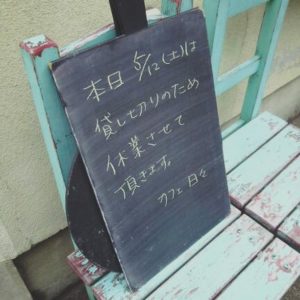 本日 5/12(土)は
貸し切りのため
休業させて
頂きます。
カフェ 日々